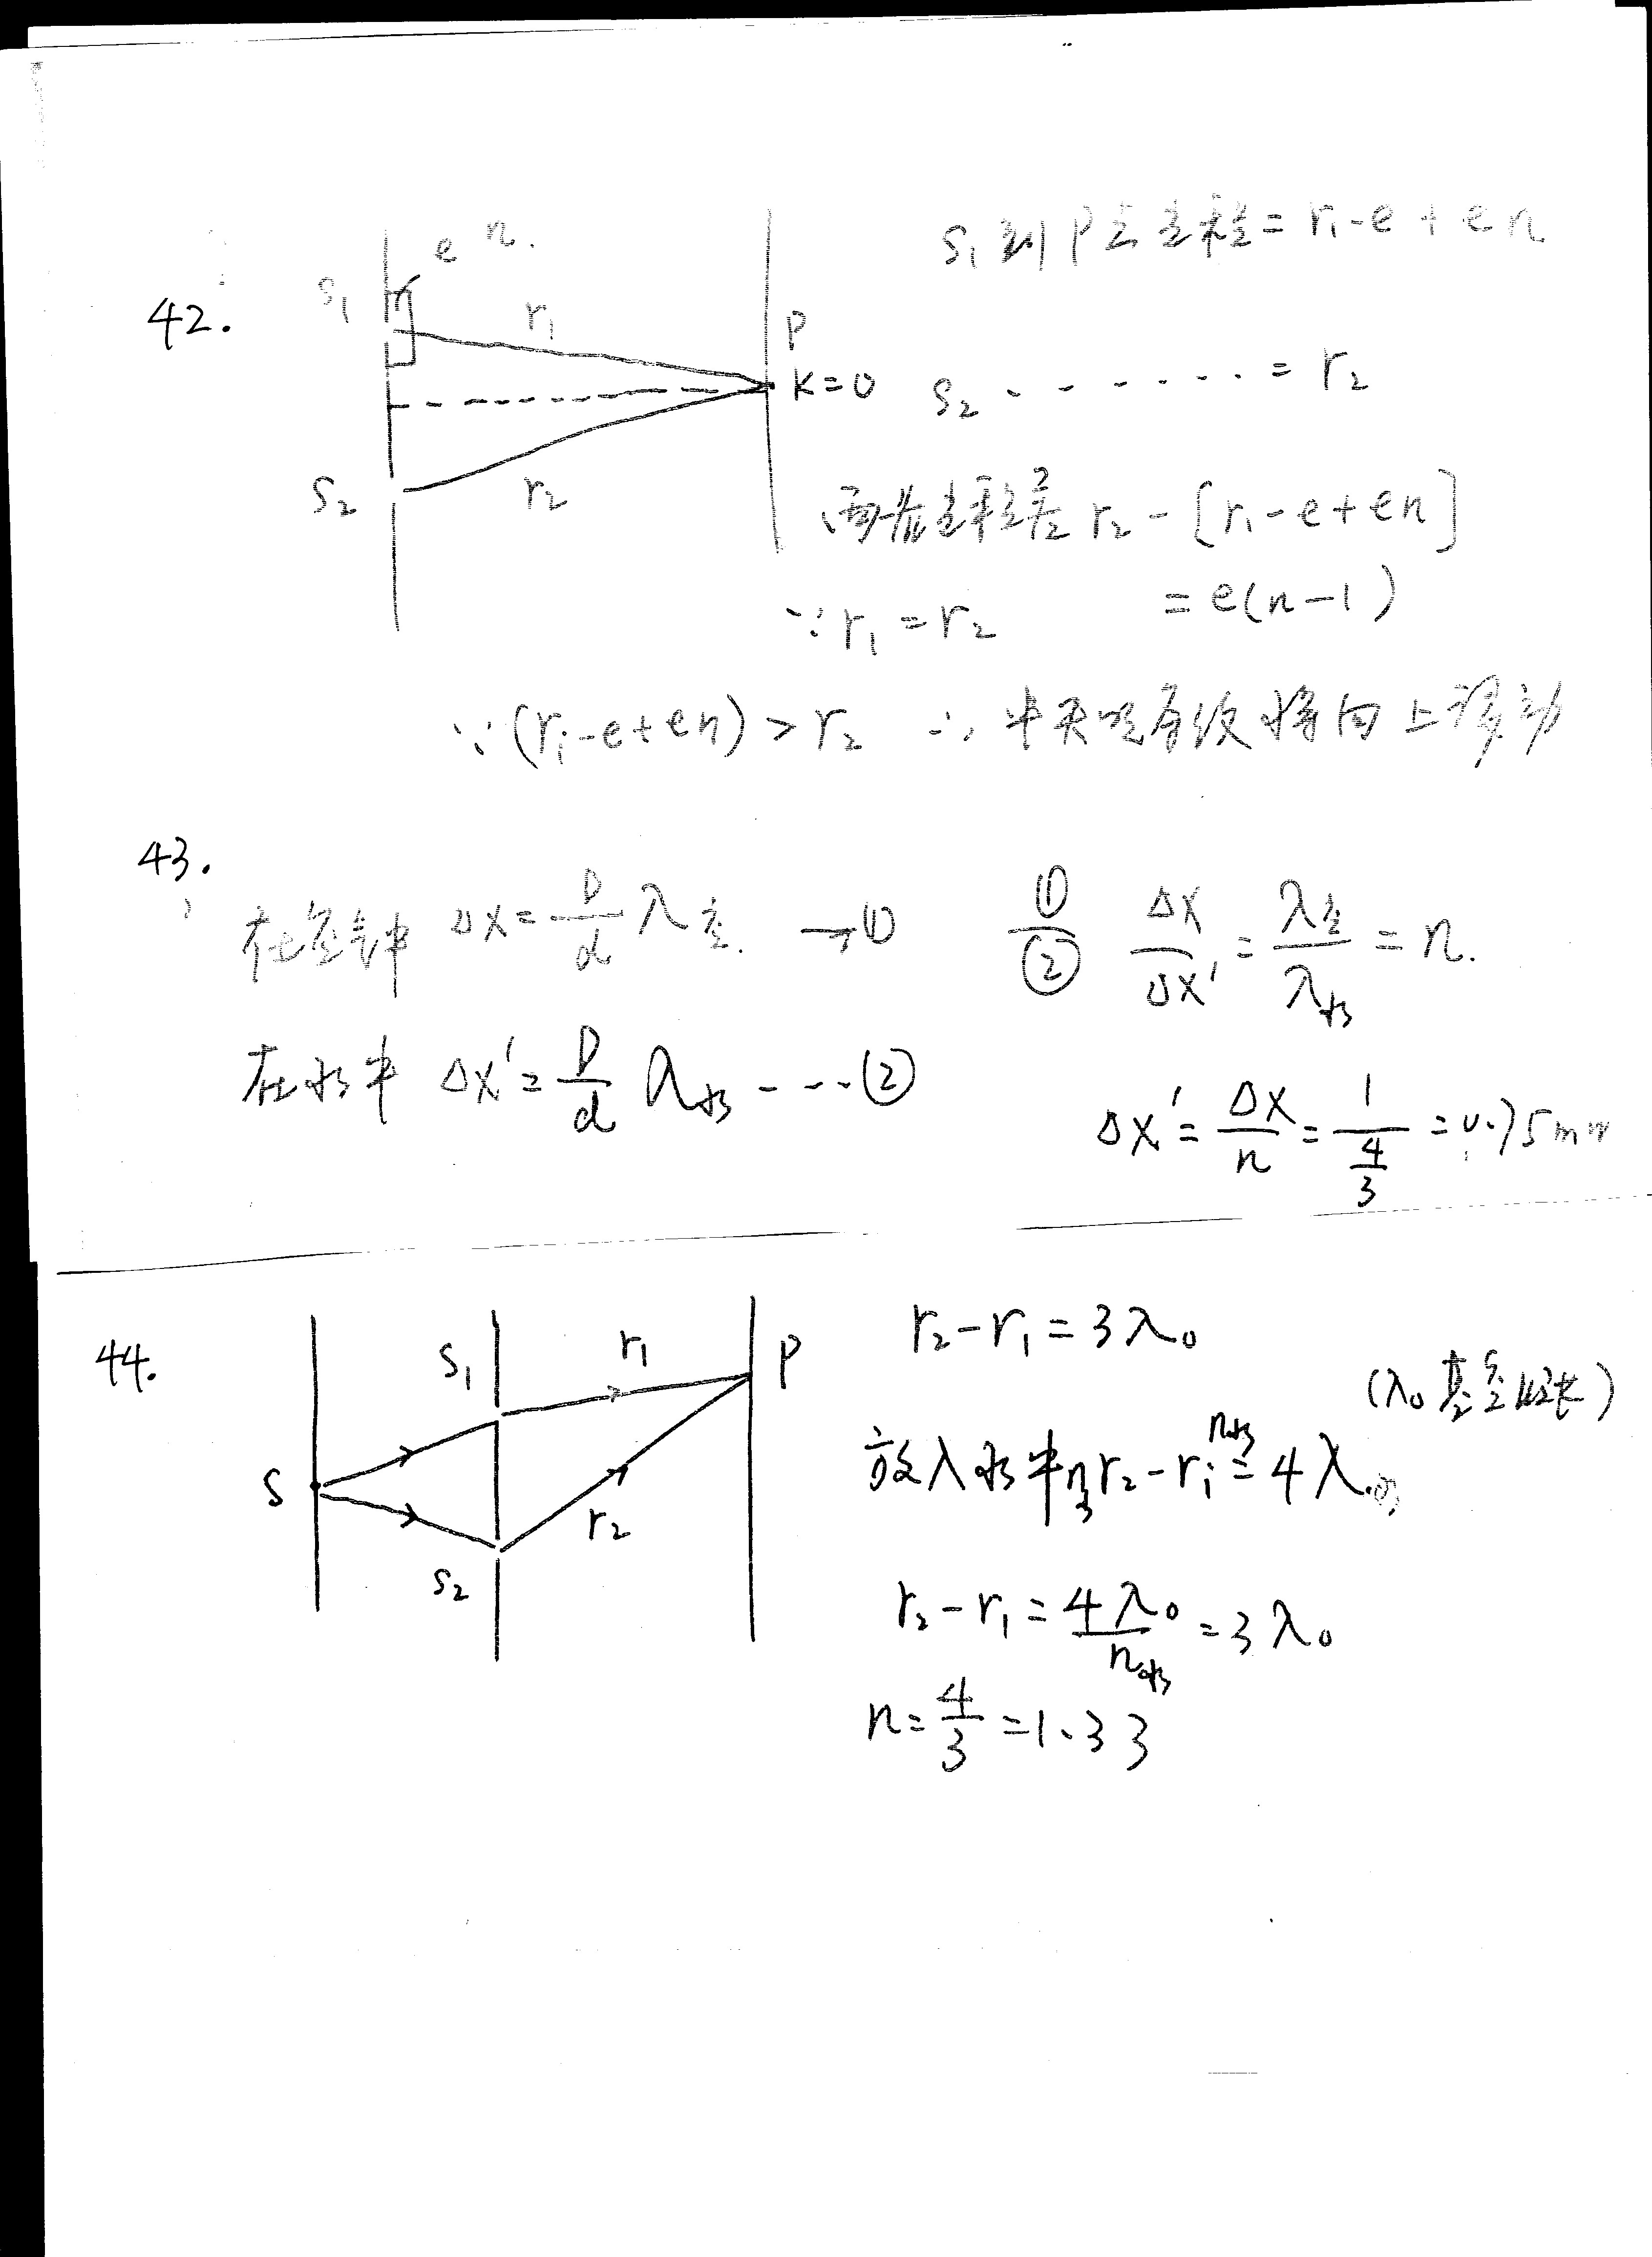 42.
e n.
S₁
r₁
P
K=0
S₂
r₂
S₁到P点光程=r₁-e+en
S₂ - - - - - - = r₂
两光光程差 r₂-[r₁-e+en]
∵r₁=r₂ =e(n-1)
∵(r₁-e+en)>r₂ ∴中央明条纹将向上移动
43.
在空气中 Δx=D/d λ空 →①
①/② Δx/Δx'=λ空/λ水=n.
在水中 Δx'=D/d λ水 ----②
Δx'=Δx/n=1/(4/3)=0.75mm
44.
S
S₁
r₁
P
S₂
r₂
r₂-r₁=3λ₀
(λ₀真空波长)
放入水中 r₂-r₁=4λ
r₂-r₁=4λ₀/n水=3λ₀
n=4/3=1.33